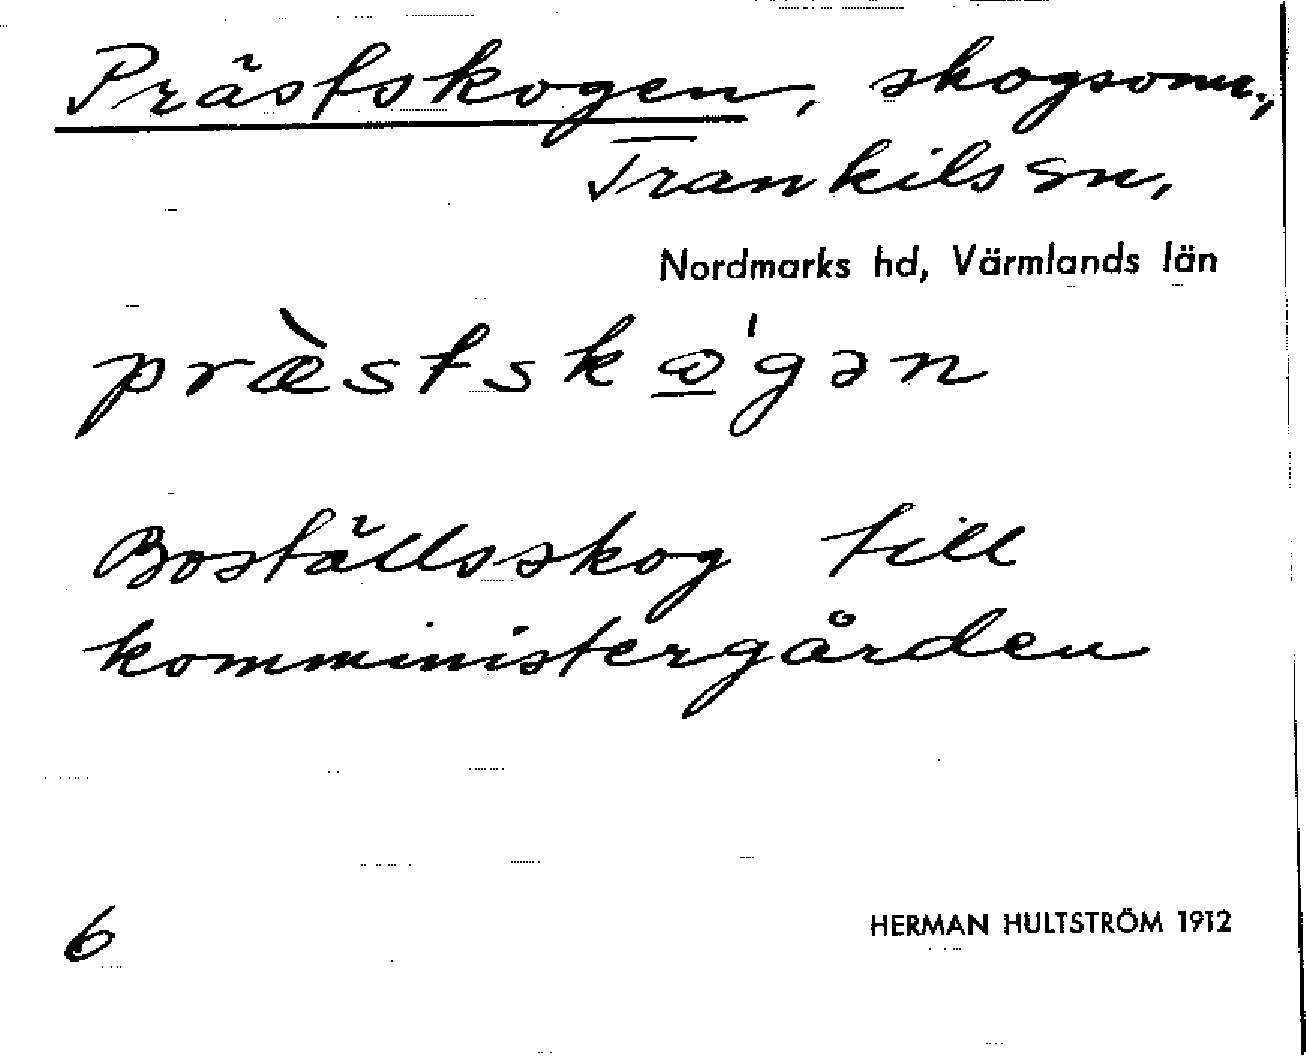 Prästskogen, skogsomr.,
Trankils sn,
Nordmarks hd, Värmlands län
præ̀stskω̲'gən
Boställsskog till
komministergården
6
HERMAN HULTSTRÖM 1912